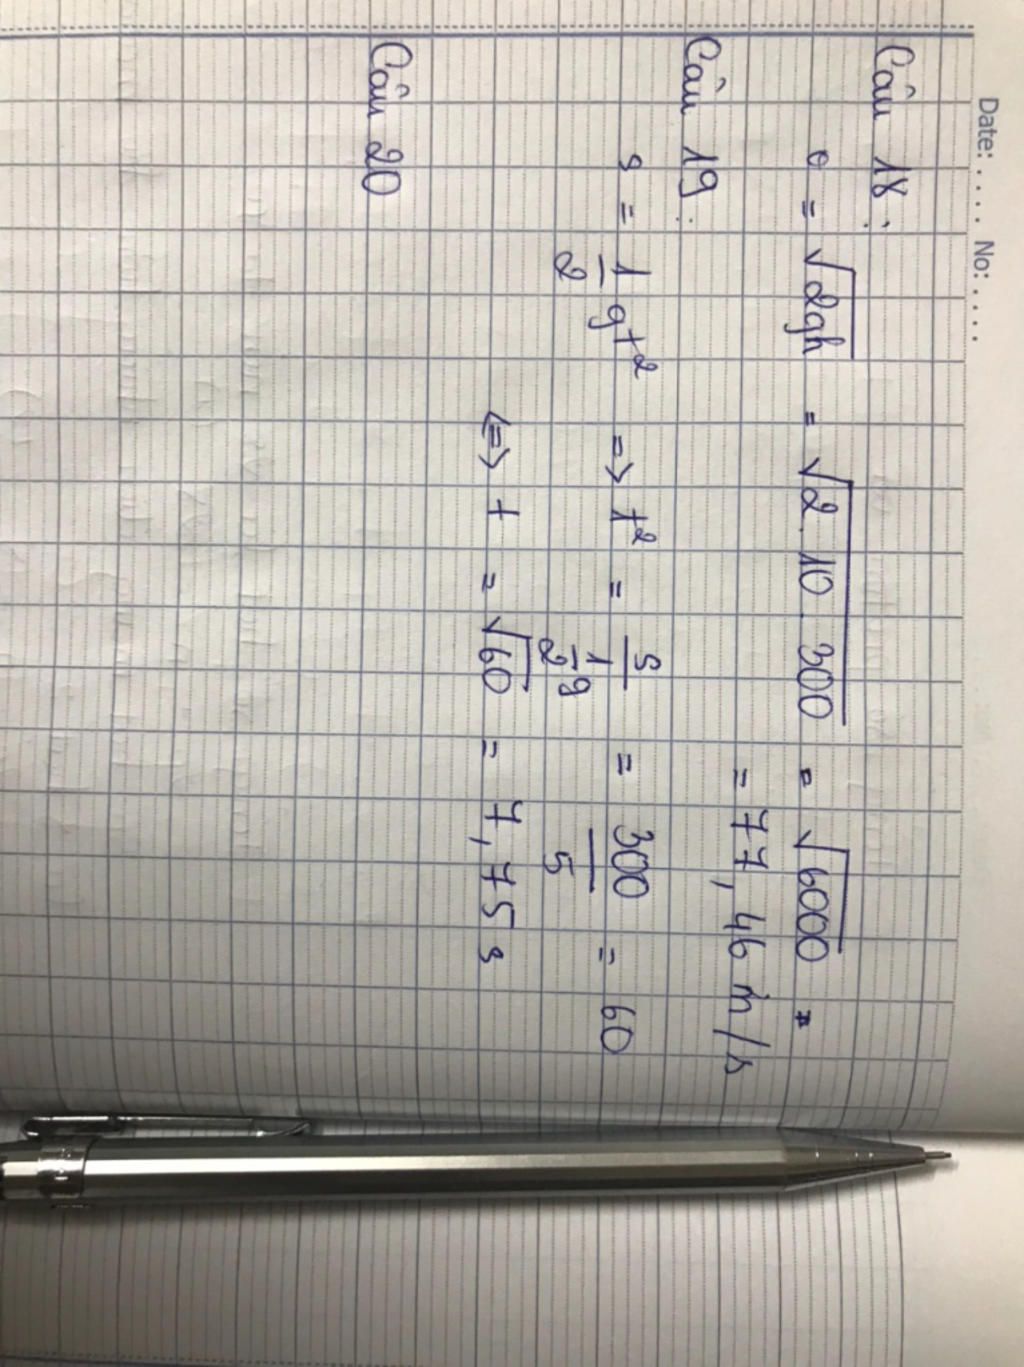 Date: ..... No: ....
Câu 18 :
v = √2gh = √2.10.300 = √6000 =
= 77,46 m/s
Câu 19 :
s = 1/2 gt² => t² = s/(1/2 g) = 300/5 = 60
<=> t = √60 = 7,75 s
Câu 20